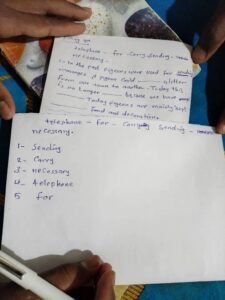 telephone - for - carry sending -
necessary.
1- In the past pigeons were used for sending
messages. A pigeon could _____ a letter
from one town to another. Today this
is no longer _____ because we have
_____. Today pigeons are mainly kept
_____ food and decorations.
telephone - for - carry sending -
necessary.
1- Sending
2- Carry
3- necessary
4- telephone
5 for